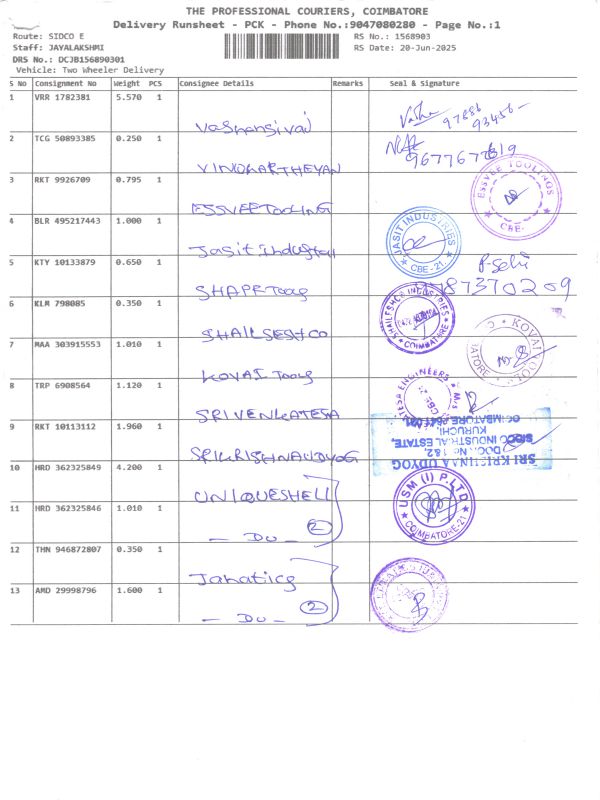 THE PROFESSIONAL COURIERS, COIMBATORE
Delivery Runsheet - PCK - Phone No.:9047080280 - Page No.:1
Route: SIDCO E
RS No.: 1568903
Staff: JAYALAKSHMI
RS Date: 20-Jun-2025
DRS No.: DCJB156890301
Vehicle: Two Wheeler Delivery
S No Consignment No Weight PCS Consignee Details Remarks Seal & Signature
1 VRR 1782381 5.570 1
2 TCG 50893385 0.250 1 VINOKARTHEYAN
3 RKT 9926709 0.795 1 ESSVEE TOOLING ESSVEE TOOLINGS CBE-
4 BLR 495217443 1.000 1 Jasit JASIT INDUSTRIES CBE-21.
5 KTY 10133879 0.650 1 SHAPE Tools
6 KLM 798085 0.350 1 SHAILSESHCO SHAILESHCO INDUSTRIES COIMBATORE
7 MAA 303915553 1.010 1 KOVAI Tools KOVAI
8 TRP 6908564 1.120 1 SRIVENKATESA ENGINEERS CBE
9 RKT 10113112 1.960 1 SRIKRISHNAUDYOG SRI KRISHNAA UDYOG
DOOR No. 1&2,
SIDCO INDUSTRIAL ESTATE,
KURUCHI,
COIMBATORE - 641 021.
10 HRD 362325849 4.200 1 UNIQUESHELL USM (I) P.LTD COIMBATORE-21
11 HRD 362325846 1.010 1 - Do - 2
12 THN 946872807 0.350 1 Janatics
13 AMD 29998796 1.600 1 - Do - 2